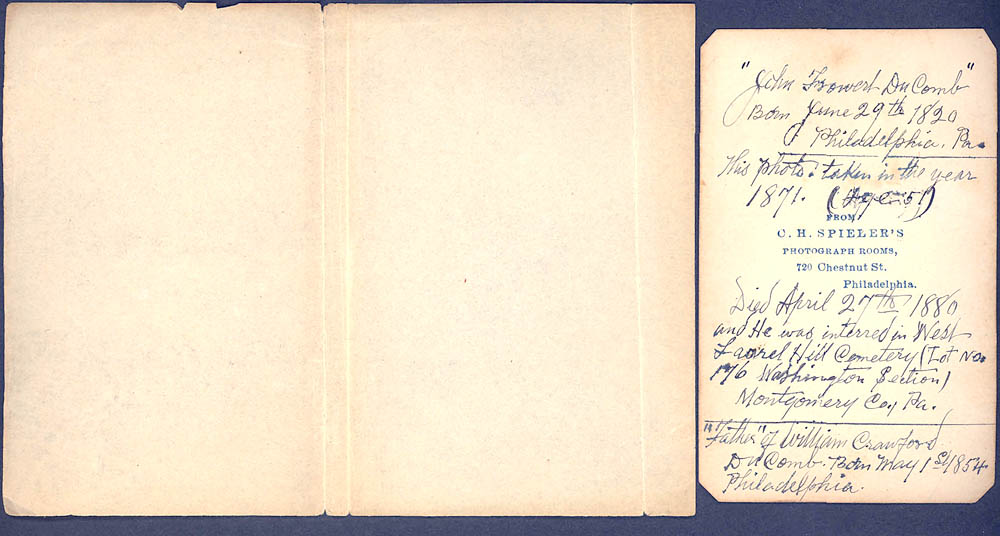 "John Frowert DuComb"
Born June 29th 1820
Philadelphia, Pa.
This photo: taken in the year
1871. (Age: 51)
FROM
C. H. SPIELER'S
PHOTOGRAPH ROOMS,
720 Chestnut St.
Philadelphia.
Died April 27th 1880
and He was interred in West
Laurel Hill Cemetery (Lot No.
176 Washington Section)
Montgomery Co., Pa.
"Father" of William Crawford
DuComb. Born May 1st 1854
Philadelphia.